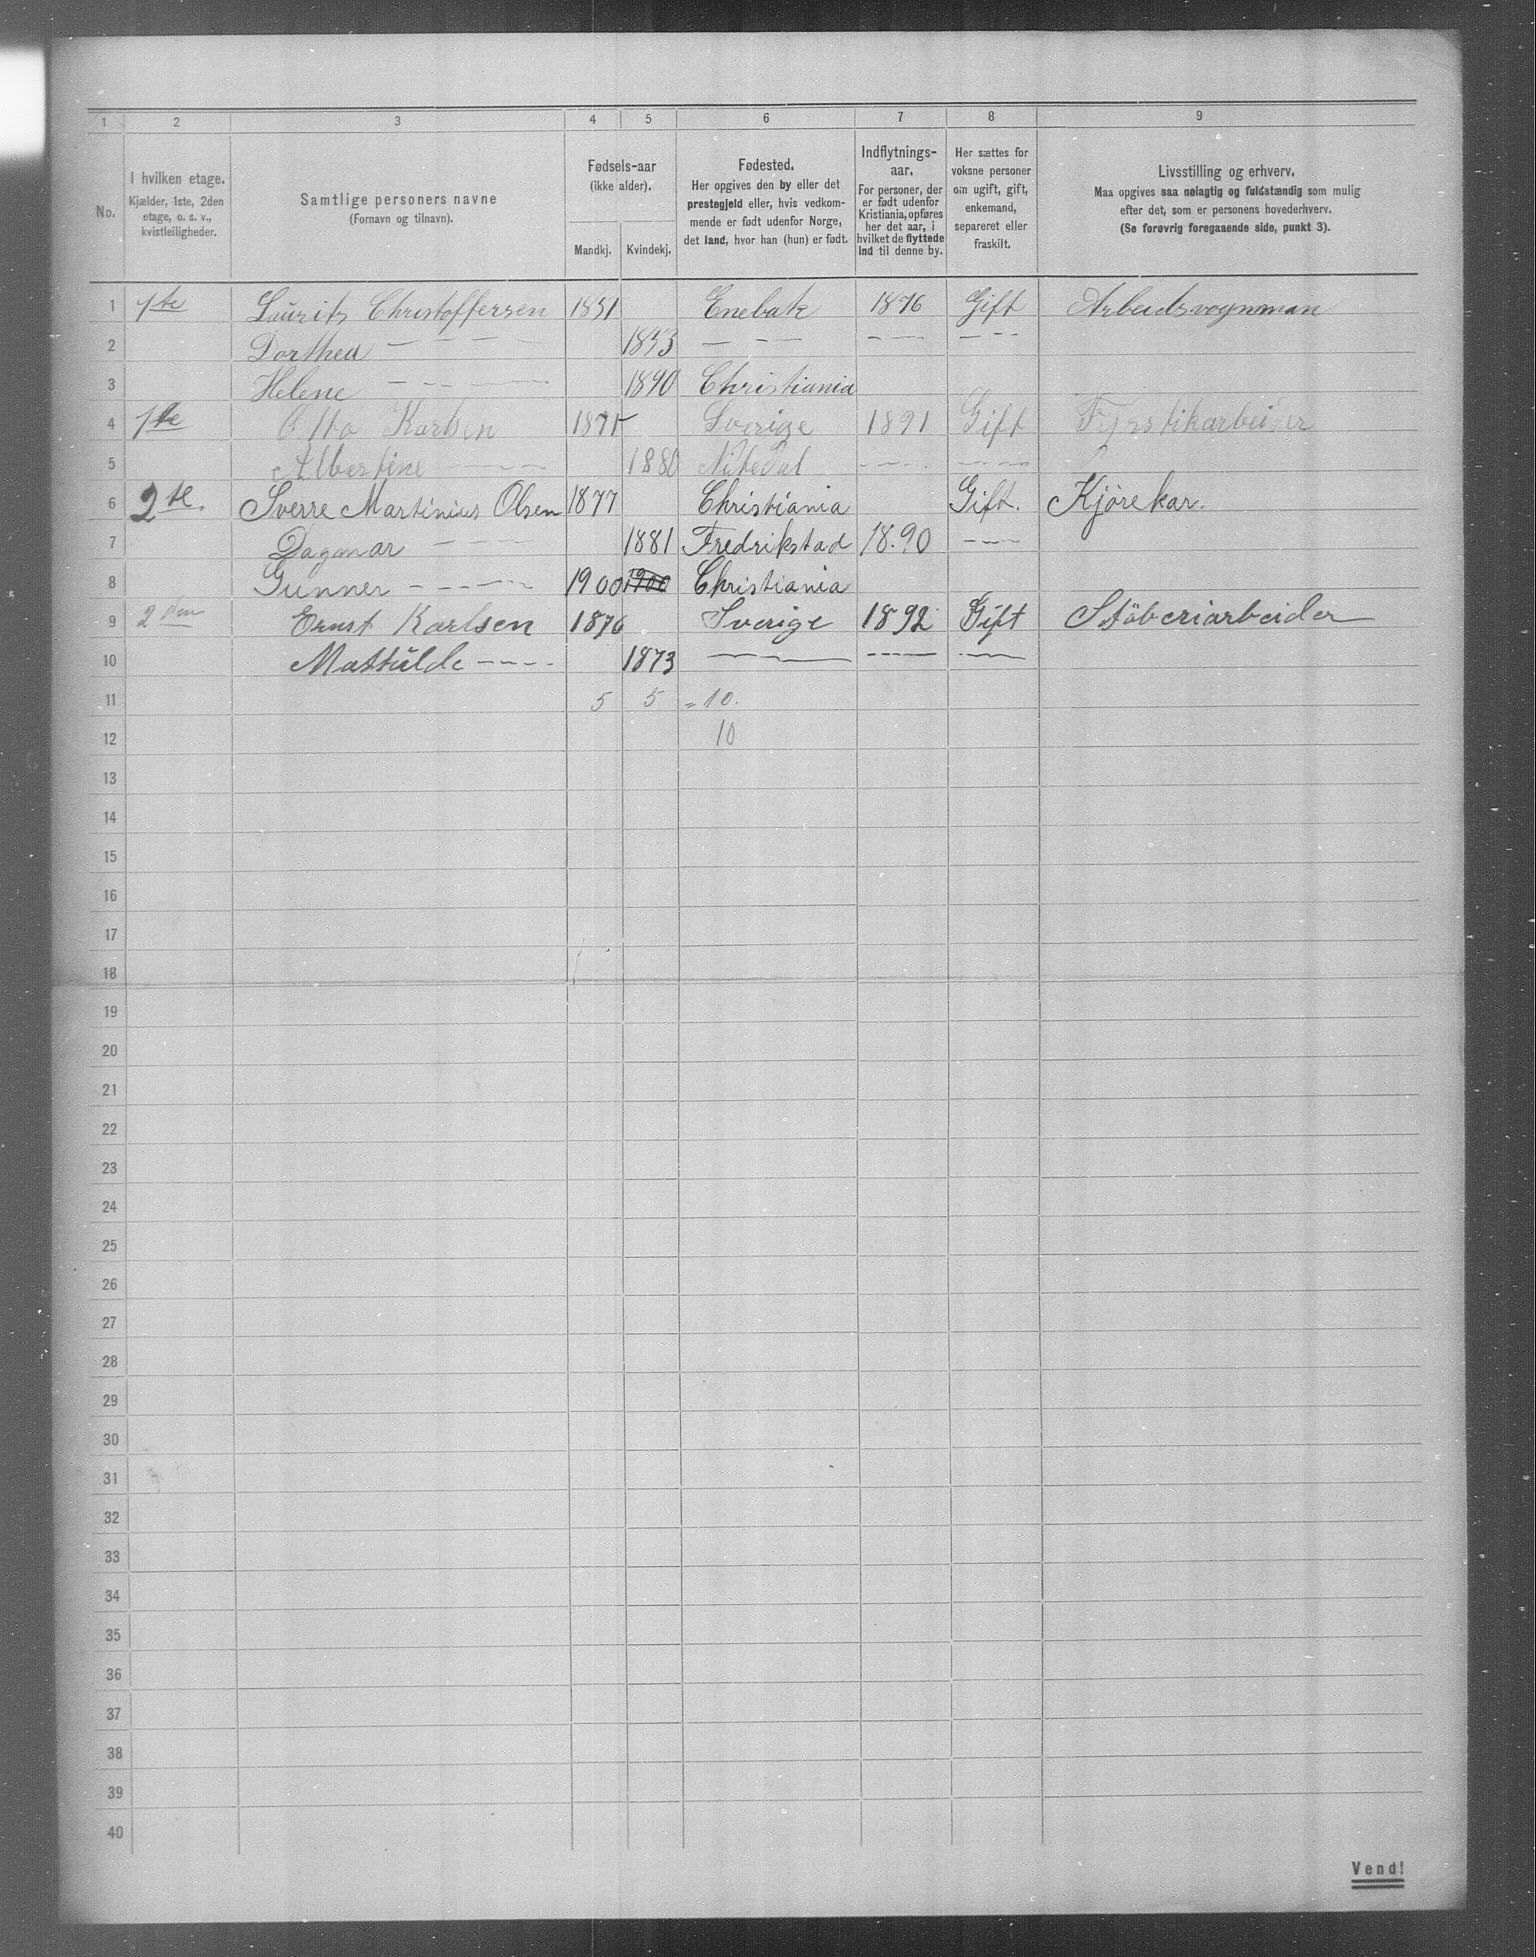 1 2 3 4 5 6 7 8 9
No.
I hvilken etage.
Kjælder, 1ste, 2den
etage, o. s. v.,
kvistleiligheder.
Samtlige personers navne
(Fornavn og tilnavn).
Fødsels-aar
(ikke alder).
Mandkj. Kvindekj.
Fødested.
Her opgives den by eller det
prestegjeld eller, hvis vedkom-
mende er født udenfor Norge,
det land, hvor han (hun) er født.
Indflytnings-
aar.
For personer, der
er født udenfor
Kristiania, opføres
her det aar, i
hvilket de flyttede
ind til denne by.
Her sættes for
voksne personer
om ugift, gift,
enkemand,
separeret eller
fraskilt.
Livsstilling og erhverv.
Maa opgives saa nøiagtig og fuldstændig som mulig
efter det, som er personens hovederhverv.
(Se forøvrig foregaaende side, punkt 3).
1 1te Laurits Christoffersen 1851 Enebak 1876 Gift Arbeidsvognman
2 Dorthea - - - - 1853 - - - - - - - - -
3 Helene - - - - 1890 Christiania
4 1te Otto Karlsen 1875 Sverige 1891 Gift Fyrstikarbeider
5 Albertine - - - - 1880 Nitedal - - - - - - -
6 2te. Sverre Martinius Olsen 1877 Christiania Gift. Kjörekar.
7 Dagmar - - - - 1881 Fredrikstad 18.90 - - -
8 Gunner - - - - 1900 1900 Christiania
9 2den Ernst Karlsen 1876 Sverige 1892 Gift Stöberiarbeider
10 Mathilde - - - - 1873 - - - - - - - - -
11 5 5 = 10.
12 10
13
14
15
16
17
18
19
20
21
22
23
24
25
26
27
28
29
30
31
32
33
34
35
36
37
38
39
40
Vend!